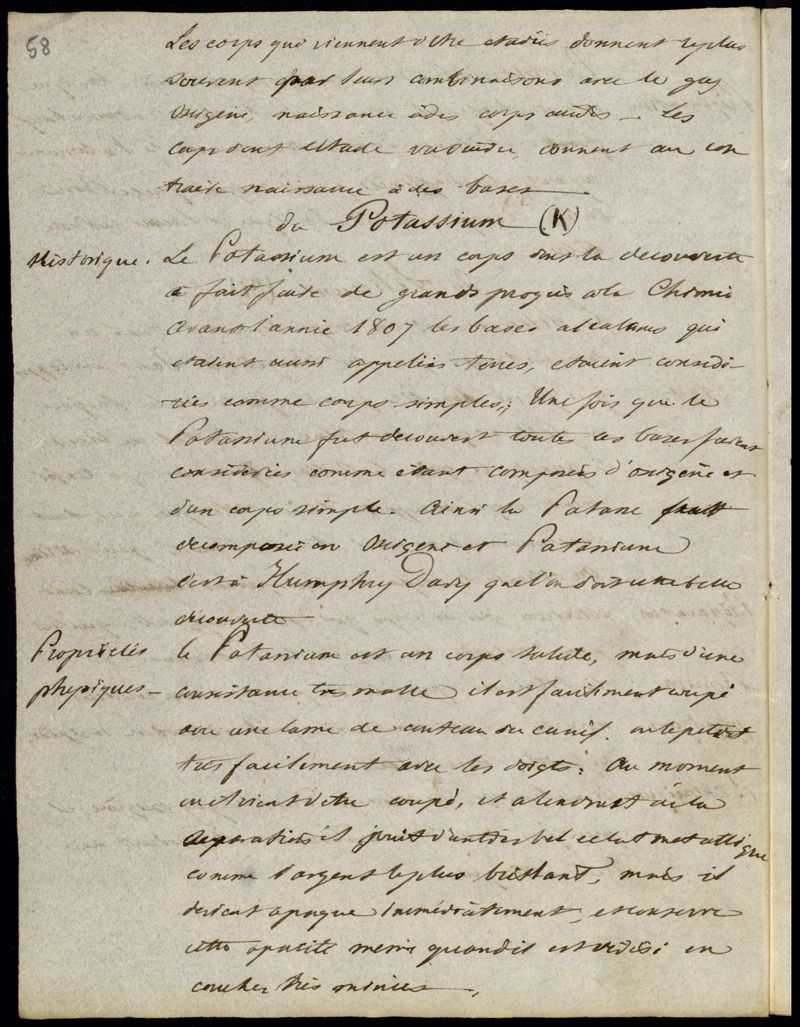 58
Les corps qui viennent d'etre etudiés donnent le plus
souvent par leurs combinaisons avec le gaz
oxigène, naissance à des corps acides – Les
corps dont l'étude va suivre, donnent au con
traire naissance à des bases
du Potassium (K)
Historique. Le Potassium est un corps dont la decouverte
a fait faire de grands progrès à la Chimie
avant l'année 1807 les bases alcalines qui
etaient aussi appelées terres, etaient considé-
rées comme corps simples; Une fois que le
Potassium fut decouvert toutes ces bases furent
considérées comme étant composées d'oxigène et
d'un corps simple. Ainsi la Potasse fut
decomposée en oxigène et Potassium
c'est à Humphry Davy que l'on doit cette belle
decouverte
Propriétés le Potassium est un corps solide, mais d'une
physiques – consistance très molle il est facilement coupé
avec une lame de couteau ou canif. on le petrit
très facilement avec les doigts: Au moment
où il vient d'etre coupé, et a l'endroit de la
separation il jouit d'un très bel eclat metallique
comme l'argent le plus brillant, mais il
devient opaque immédiatement, et conserve
cette opacité meme quand il est reduit en
couches très minces